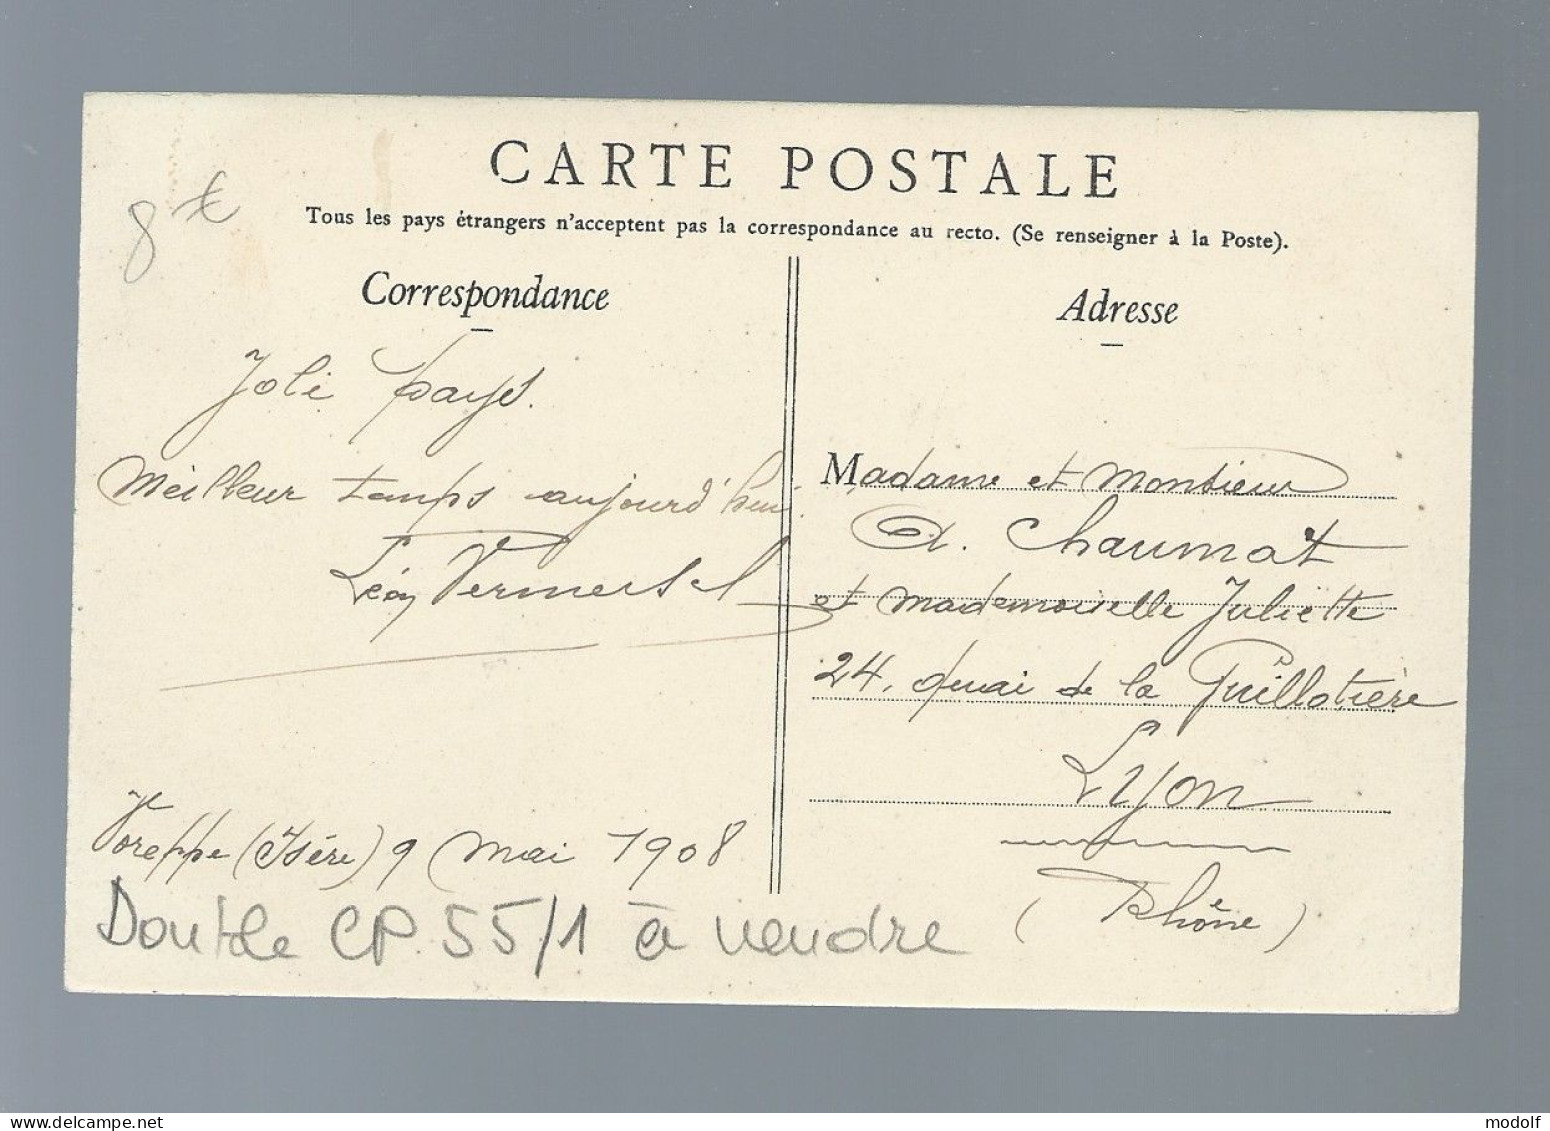 CARTE POSTALE
Tous les pays étrangers n'acceptent pas la correspondance au recto. (Se renseigner à la Poste).
8 €
Correspondance
Joli pays.
Meilleur temps aujourd'hui.
Léon Vermersch
Voreppe (Isère) 9 mai 1908
Double CP 55/1 à vendre
Adresse
Madame et Monsieur
A. Chaumat
et Mademoiselle Juliette
24, quai de la Guillotière
Lyon
(Rhône)
modolf